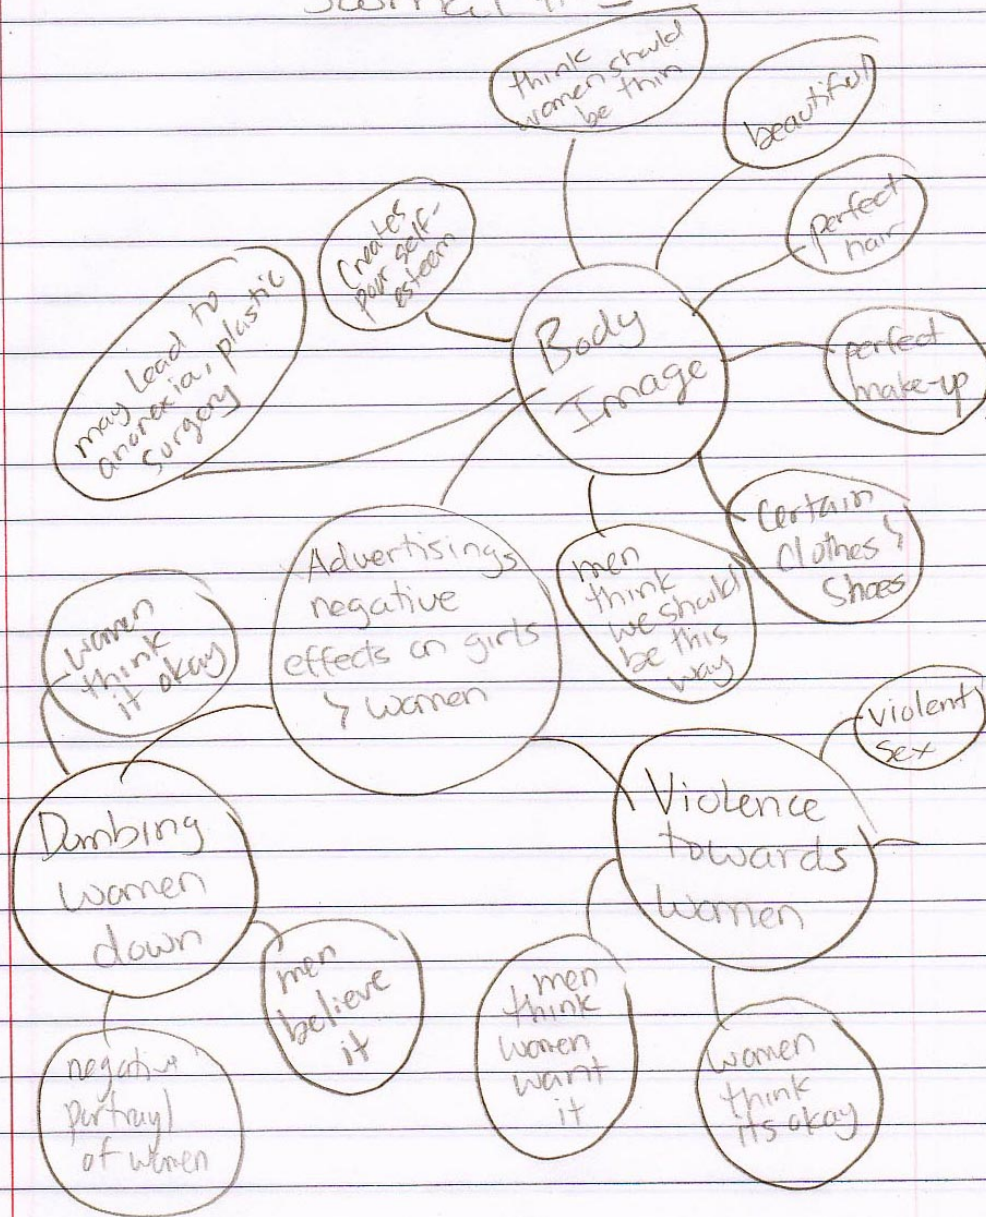 think
women should
be thin
beautiful
perfect
hair
Creates
poor self-
esteem
may lead to
anorexia, plastic
surgery
Body
Image
perfect
make-up
Certain
Clothes &
Shoes
men
think
we should
be this
way
Advertisings
negative
effects on girls
& women
women
think
it okay
violent
sex
Violence
towards
women
Dumbing
women
down
men
believe
it
men
think
women
want
it
women
think
its okay
negative
portrayl
of women